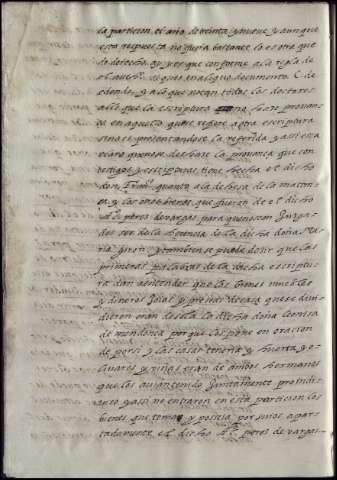 la particion el año de treinta y nueve y aunque
esta respuesta no fuera bastante lo es otra que
do derecho ay y es que conforme a la regla de
el auth. si quis in aliquo documento C. de
edendo y a lo que notan todos los doctores
alli que la escriptura no hace provança
en aquello que se refiere a otra escriptura
sino es presentandose la referida y assi esta
claro que no se deshace la provança que con
testigos y escripturas tiene hecha el dicho
don quanto a la dehesa de la maton
y los otros bienes que fueron de el dicho
peres de vargas para que no sean juzga
dos ser de la herencia de la dicha doña
giron y tambien se puede desir que las
primeras palabras de la dicha escriptu
ra dan a entender que los bienes muebles
y dineros joias y preseas de casa que se divi
dieron eran de sola la dicha doña
de mendoça porque los pone en oracion
de por si y las casas teneria y huerta y o
livares y viñas eran de ambos hermanos
que los avian tenido juntamente proindi
viso y assi no entraron en esta particion los
bienes que tomava y poseia por suios apar
tadamente el dicho peres de vargas